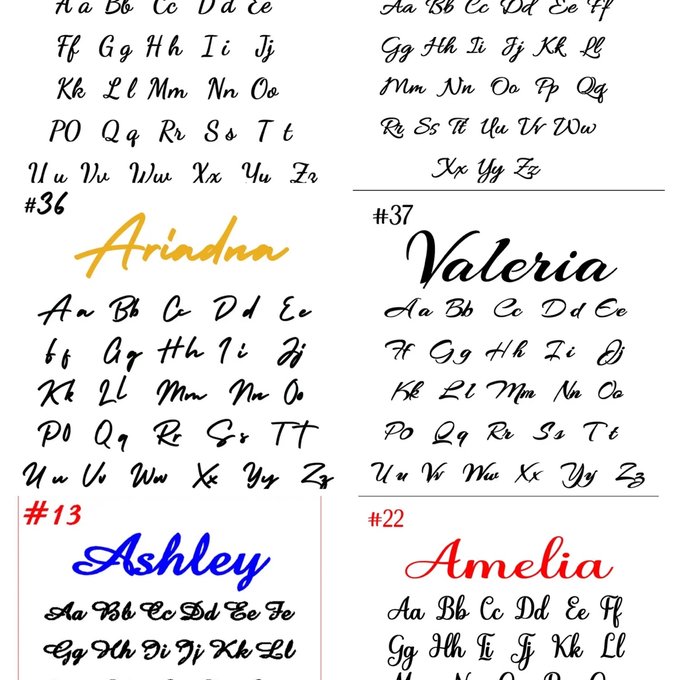 Aa Bb Cc Dd Ee
Ff Gg Hh Ii Jj
Kk Ll Mm Nn Oo
PO Qq Rr Ss Tt
Uu Vv Ww Xx Yy Zz
Aa Bb Cc Dd Ee Ff
Gg Hh Ii Jj Kk Ll
Mm Nn Oo Pp Qq
Rr Ss Tt Uu Vv Ww
Xx Yy Zz
#36
Ariadna
Aa Bb Cc Dd Ee
ff Gg Hh Ii Jj
Kk Ll Mm Nn Oo
PO Qq Rr Ss TT
Uu Vv Ww Xx Yy Zz
#37
Valeria
Aa Bb Cc Dd Ee
Ff Gg Hh Ii Jj
Kk Ll Mm Nn Oo
PO Qq Rr Ss Tt
Uu Vv Ww Xx Yy Zz
#13
Ashley
Aa Bb Cc Dd Ee Fe
Gg Hh Ii Jj Kk Ll
#22
Amelia
Aa Bb Cc Dd Ee Ff
Gg Hh Ii Jj Kk Ll
Mm Nn Oo